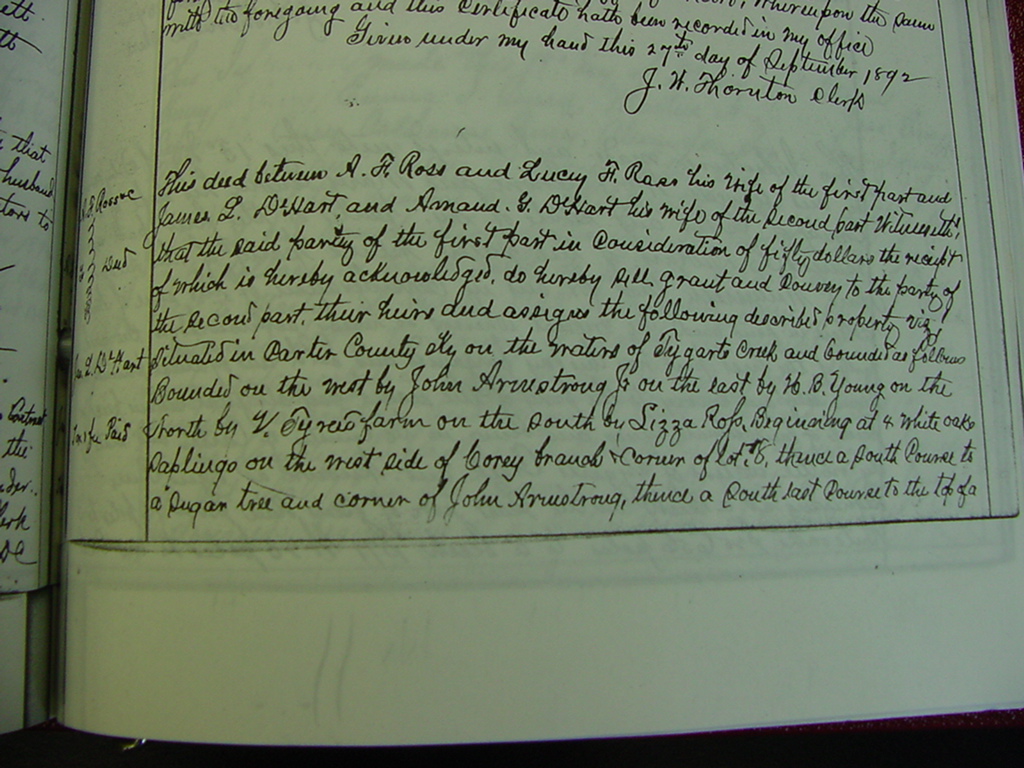 whereupon the same
with the foregoing and this certificate hath been recorded in my office
Given under my hand this 27th day of September, 1892
J. W. Thornton Clerk
This deed between A. F. Ross and Lucey F. Ross his wife of the first part and
James L. DeHart, and Armaud. G. DeHart his wife of the second part Witnesseth,
that the said party of the first part in Consideration of fifty dollars the receipt
of which is hereby acknowledged, do hereby sell grant and Convey to the party of
the second part, their heirs and assigns the following described property, viz,
Situated in Carter County Ky on the waters of Tygarts Creek and bounded as follows
Bounded on the west by John Armstrong Jr on the east by H. B. Young on the
North by V. Tyree farm on the south by Lizza Ross, Beginning at 4 White oak
Saplings on the west side of Corey branch & Corner of lot #8, thence a South Course to
a Sugar tree and corner of John Armstrong, thence a South East Course to the top of a
Deed
DeHart
Paid
that
husband
the